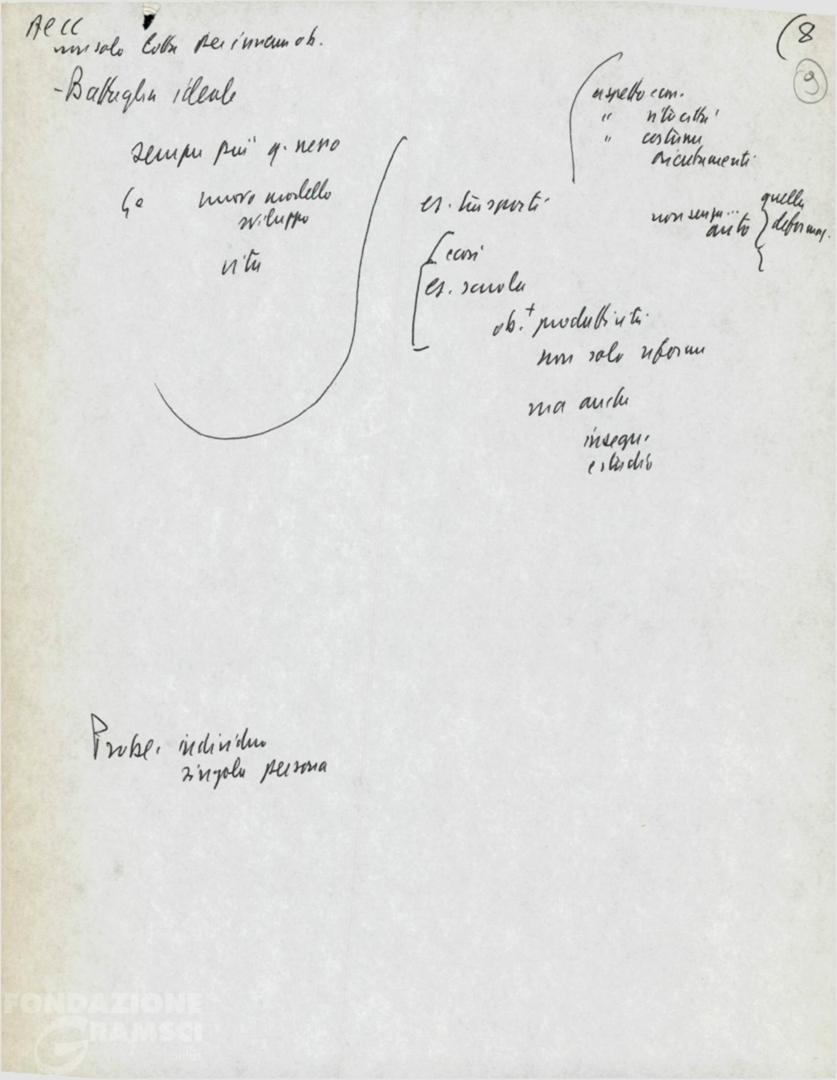 non solo lotta per
- Battaglia ideale
sempre più q. nesso
nuovo modello
sviluppo
vita
es. trasporti
così
es. scuola
ob.+ produttività
non solo riforma
ma anche
insegn.
e studio
(8
9
aspetto econ.
" vita città
" costume
non senza...
auto
quella
deformaz.
individuo
singola persona
FONDAZIONE
GRAMSCI